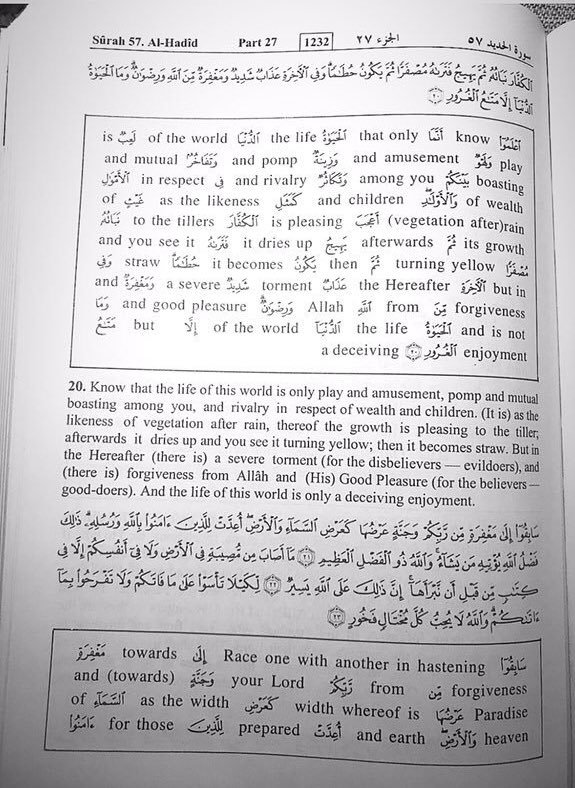 Sûrah 57. Al-Hadîd Part 27 1232 الجزء ٢٧ سورة الحديد ٥٧
الْكُفَّارَ نَبَاتُهُ ثُمَّ يَهِيجُ فَتَرَىٰهُ مُصْفَرًّا ثُمَّ يَكُونُ حُطَٰمًا ۖ وَفِي الْآخِرَةِ عَذَابٌ شَدِيدٌ وَمَغْفِرَةٌ مِّنَ اللَّهِ وَرِضْوَٰنٌ ۚ وَمَا الْحَيَوٰةُ
الدُّنْيَا إِلَّا مَتَٰعُ الْغُرُورِ ٢٠
اعْلَمُوا know أَنَّمَا that only الْحَيَوٰةُ the life الدُّنْيَا of the world لَعِبٌ is
play وَلَهْوٌ and amusement وَزِينَةٌ and pomp وَتَفَاخُرٌ and mutual
boasting بَيْنَكُمْ among you وَتَكَاثُرٌ and rivalry فِي in respect الْأَمْوَٰلِ
of wealth وَالْأَوْلَٰدِ and children كَمَثَلِ as the likeness غَيْثٍ of
rain(vegetation after) أَعْجَبَ is pleasing الْكُفَّارَ to the tillers نَبَاتُهُ
its growth ثُمَّ afterwards يَهِيجُ it dries up فَتَرَىٰهُ and you see it
مُصْفَرًّا turning yellow ثُمَّ then يَكُونُ it becomes حُطَٰمًا straw وَفِي
but in الْآخِرَةِ the Hereafter عَذَابٌ torment شَدِيدٌ a severe وَمَغْفِرَةٌ and
forgiveness مِّنَ from اللَّهِ Allah وَرِضْوَٰنٌ and good pleasure وَمَا
and is not الْحَيَوٰةُ the life الدُّنْيَا of the world إِلَّا but مَتَٰعُ
enjoyment الْغُرُورِ ٢٠ a deceiving
20. Know that the life of this world is only play and amusement, pomp and mutual
boasting among you, and rivalry in respect of wealth and children. (It is) as the
likeness of vegetation after rain, thereof the growth is pleasing to the tiller;
afterwards it dries up and you see it turning yellow; then it becomes straw. But in
the Hereafter (there is) a severe torment (for the disbelievers — evildoers), and
(there is) forgiveness from Allâh and (His) Good Pleasure (for the believers —
good-doers). And the life of this world is only a deceiving enjoyment.
سَابِقُوا إِلَىٰ مَغْفِرَةٍ مِّن رَّبِّكُمْ وَجَنَّةٍ عَرْضُهَا كَعَرْضِ السَّمَاءِ وَالْأَرْضِ أُعِدَّتْ لِلَّذِينَ ءَامَنُوا بِاللَّهِ وَرُسُلِهِ ۚ ذَٰلِكَ
فَضْلُ اللَّهِ يُؤْتِيهِ مَن يَشَاءُ ۚ وَاللَّهُ ذُو الْفَضْلِ الْعَظِيمِ ٢١ مَا أَصَابَ مِن مُّصِيبَةٍ فِي الْأَرْضِ وَلَا فِي أَنفُسِكُمْ إِلَّا فِي
كِتَٰبٍ مِّن قَبْلِ أَن نَّبْرَأَهَا ۚ إِنَّ ذَٰلِكَ عَلَى اللَّهِ يَسِيرٌ ٢٢ لِّكَيْلَا تَأْسَوْا عَلَىٰ مَا فَاتَكُمْ وَلَا تَفْرَحُوا بِمَا
ءَاتَىٰكُمْ ۗ وَاللَّهُ لَا يُحِبُّ كُلَّ مُخْتَالٍ فَخُورٍ ٢٣
سَابِقُوا Race one with another in hastening إِلَىٰ towards مَغْفِرَةٍ
forgiveness مِّن from رَّبِّكُمْ your Lord وَجَنَّةٍ and (towards)
Paradise عَرْضُهَا width whereof is كَعَرْضِ as the width السَّمَاءِ of
heaven وَالْأَرْضِ and earth أُعِدَّتْ prepared لِلَّذِينَ for those ءَامَنُوا